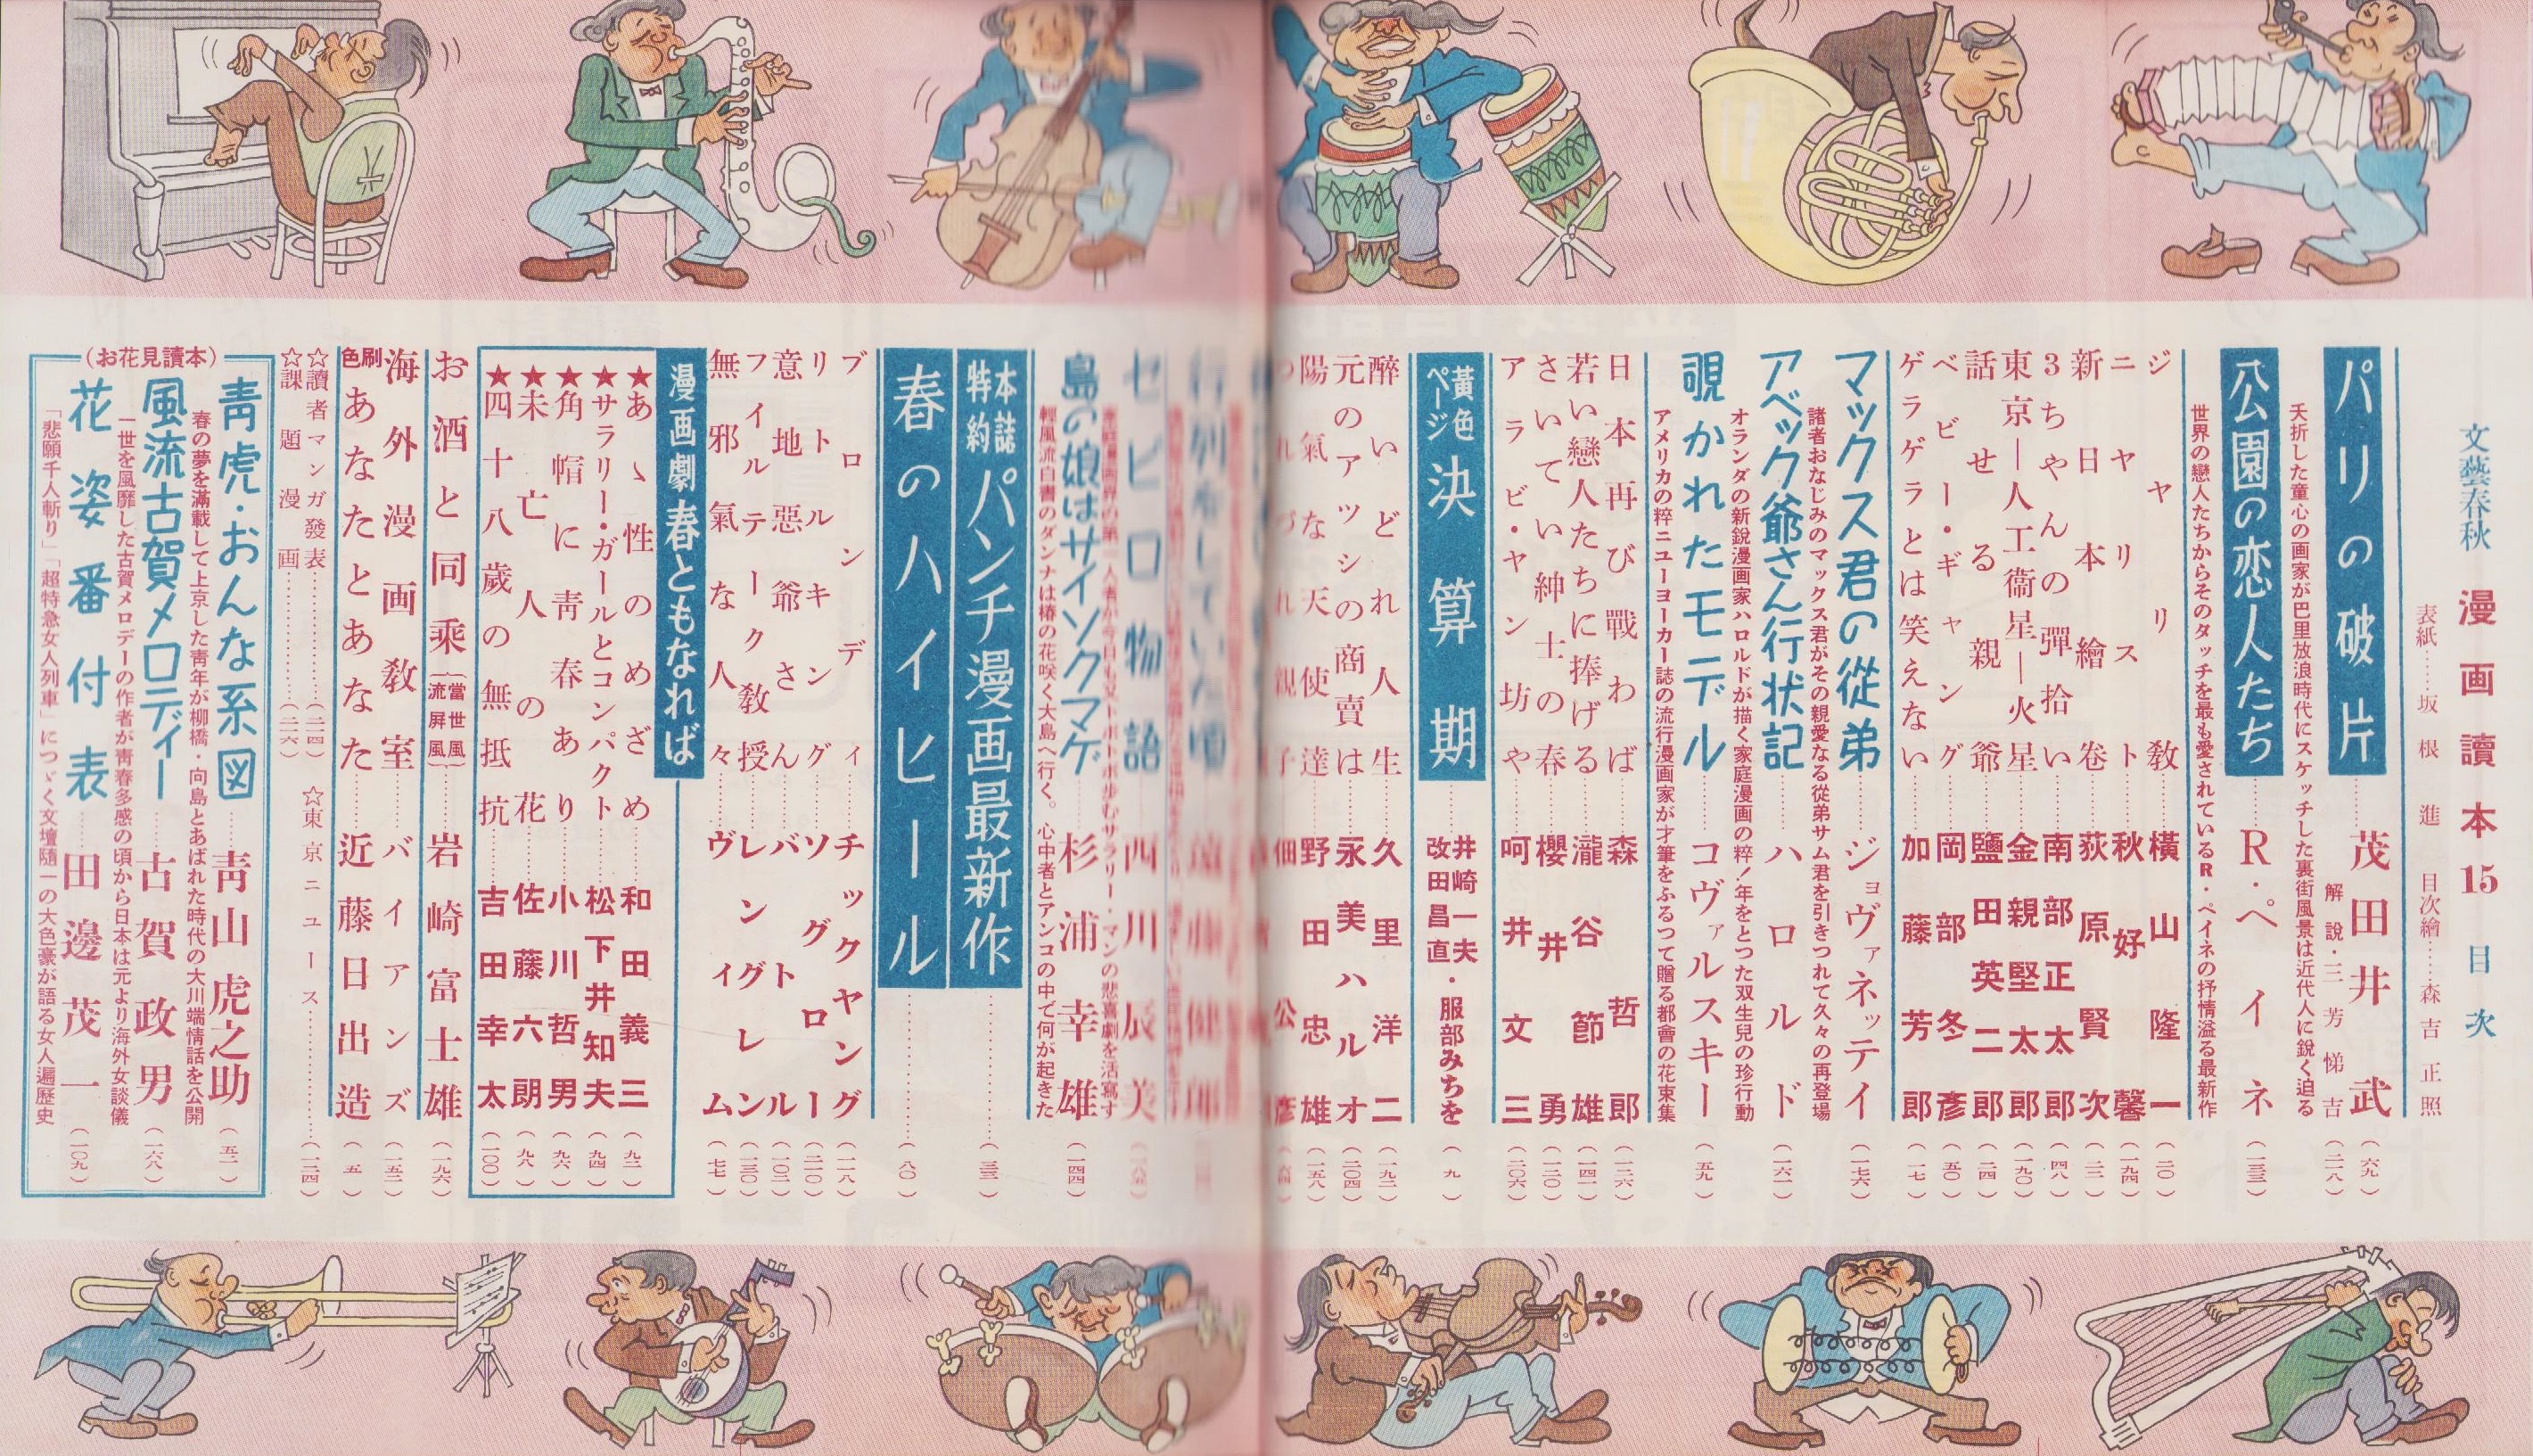 文藝春秋 漫画讀本 15 目次
表紙……坂根進 目次繪……森吉正照
パリの破片……茂田井武(六九)
解説・三芳悌吉(二一八)
夭折した童心の画家が巴里放浪時代にスケッチした裏街風景は近代人に鋭く迫る
公園の恋人たち……R・ペイネ(一三三)
世界の戀人たちからそのタッチを最も愛されているR・ペイネの抒情溢る最新作
ジャリリ教……横山隆一(二〇)
ニヤリスト……秋好馨(一九四)
新日本繪巻……荻原賢次(二二)
3ちやんの彈拾い……南部正太郎(四八)
東京―人工衞星―火星……金親堅太郎(一九〇)
話せる親爺……鹽田英二郎(二四)
ベビー・ギャング……岡部冬彥(五〇)
ゲラゲラとは笑えない……加藤芳郎(一七)
マックス君の從弟……ジョヴァネッテイ(一七六)
諸者おなじみのマックス君がその親愛なる從弟サム君を引きつれて久々の再登場
アベック爺さん行状記……ハロルド(一六一)
オランダの新鋭漫画家ハロルドが描く家庭漫画の粹!年をとつた双生兒の珍行動
覗かれたモデル……コヴァルスキー(五九)
アメリカの粹ニューヨーカー誌の流行漫画家が才筆をふるつて贈る都會の花束集
日本再び戰わば……森哲郎(一二六)
若い戀人たちに捧げる……瀧谷節雄(一四一)
さいてい紳士の春……櫻井勇(一二〇)
アラビ・ヤン坊や……呵井文三(二〇六)
黃色ページ 決算期……井崎一夫・改田昌直・服部みちを(九)
醉いどれ人生……久里洋二(一九二)
元のアツシの商賣は……永美ハルオ(二〇四)
陽氣な天使達……野田忠雄(一五八)
セビロ物語……西川辰美(一八五)
島の娘はサイソクマゲ……杉浦幸雄(一四四)
輕風流自書のダンナは椿の花咲く大島へ行く。心中者とアンコの中で何が起きた
本誌特約 パンチ漫画最新作……(三三)
春のハイヒール……(八〇)
ブロンディ……チックヤング(一一八)
リトルキング……ソグロー(二一〇)
意地惡爺さん……バトル(一〇二)
フイルテーク敎授……レングレン(一三〇)
無邪氣な人々……ヴィム(七七)
漫画劇 春ともなれば
★あゝ性のめざめ……和田義三(九二)
★サラリー・ガールとコンパクト……松下井知夫(九四)
★角帽に靑春あり……小川哲男(九六)
★未亡人の花……佐藤六朗(九八)
★四十八歳の無抵抗……吉田幸太(一〇〇)
お酒と同乘(當世風流屏風)……岩崎富士雄(一九六)
海外漫画敎室……バイアンズ(一五二)
色刷 あなたとあなた……近藤日出造(五)
☆讀者マンガ發表……(二一四) ☆東京ニュース……(一二四)
☆課題漫画……(二一六)
(お花見讀本)
靑虎・おんな系図……靑山虎之助(五二)
春の夢を滿載して上京した靑年が柳橋・向島とあばれた時代の大川端情話を公開
風流古賀メロディー……古賀政男(一六八)
一世を風靡した古賀メロデーの作者が靑春多感の頃から日本は元より海外女談儀
花姿番付表……田邊茂一(一〇九)
「悲願千人斬り」「超特急女人列車」につゞく文壇隨一の大色豪が語る女人遍歷史